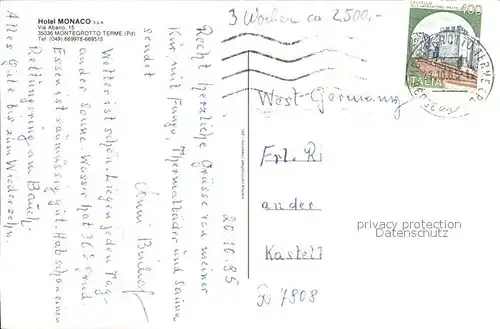 Hotel MONACO s.p.A.
Via Abano, 15
35036 MONTEGROTTO TERME (Pd)
Tel. (049) 669978-669515
3 Wochen ca 2500,-
400
ITALIA
20.10.85
Recht herzliche Grüsse von meiner
Kur, mit Fango, Thermalbäder und Sauna
sendet
Wetter ist schön. Liegen jeden Tag
an der Sonne. Wasser hat 36,5 Grad
Essen ist saumässig gut. Hab schon einen
Rettungsring am Bauch.
Alles Gute bis zum Wiedersehn.
West-Germany
Frl. R
an der
Kastell
D 7808
privacy protection
Datenschutz